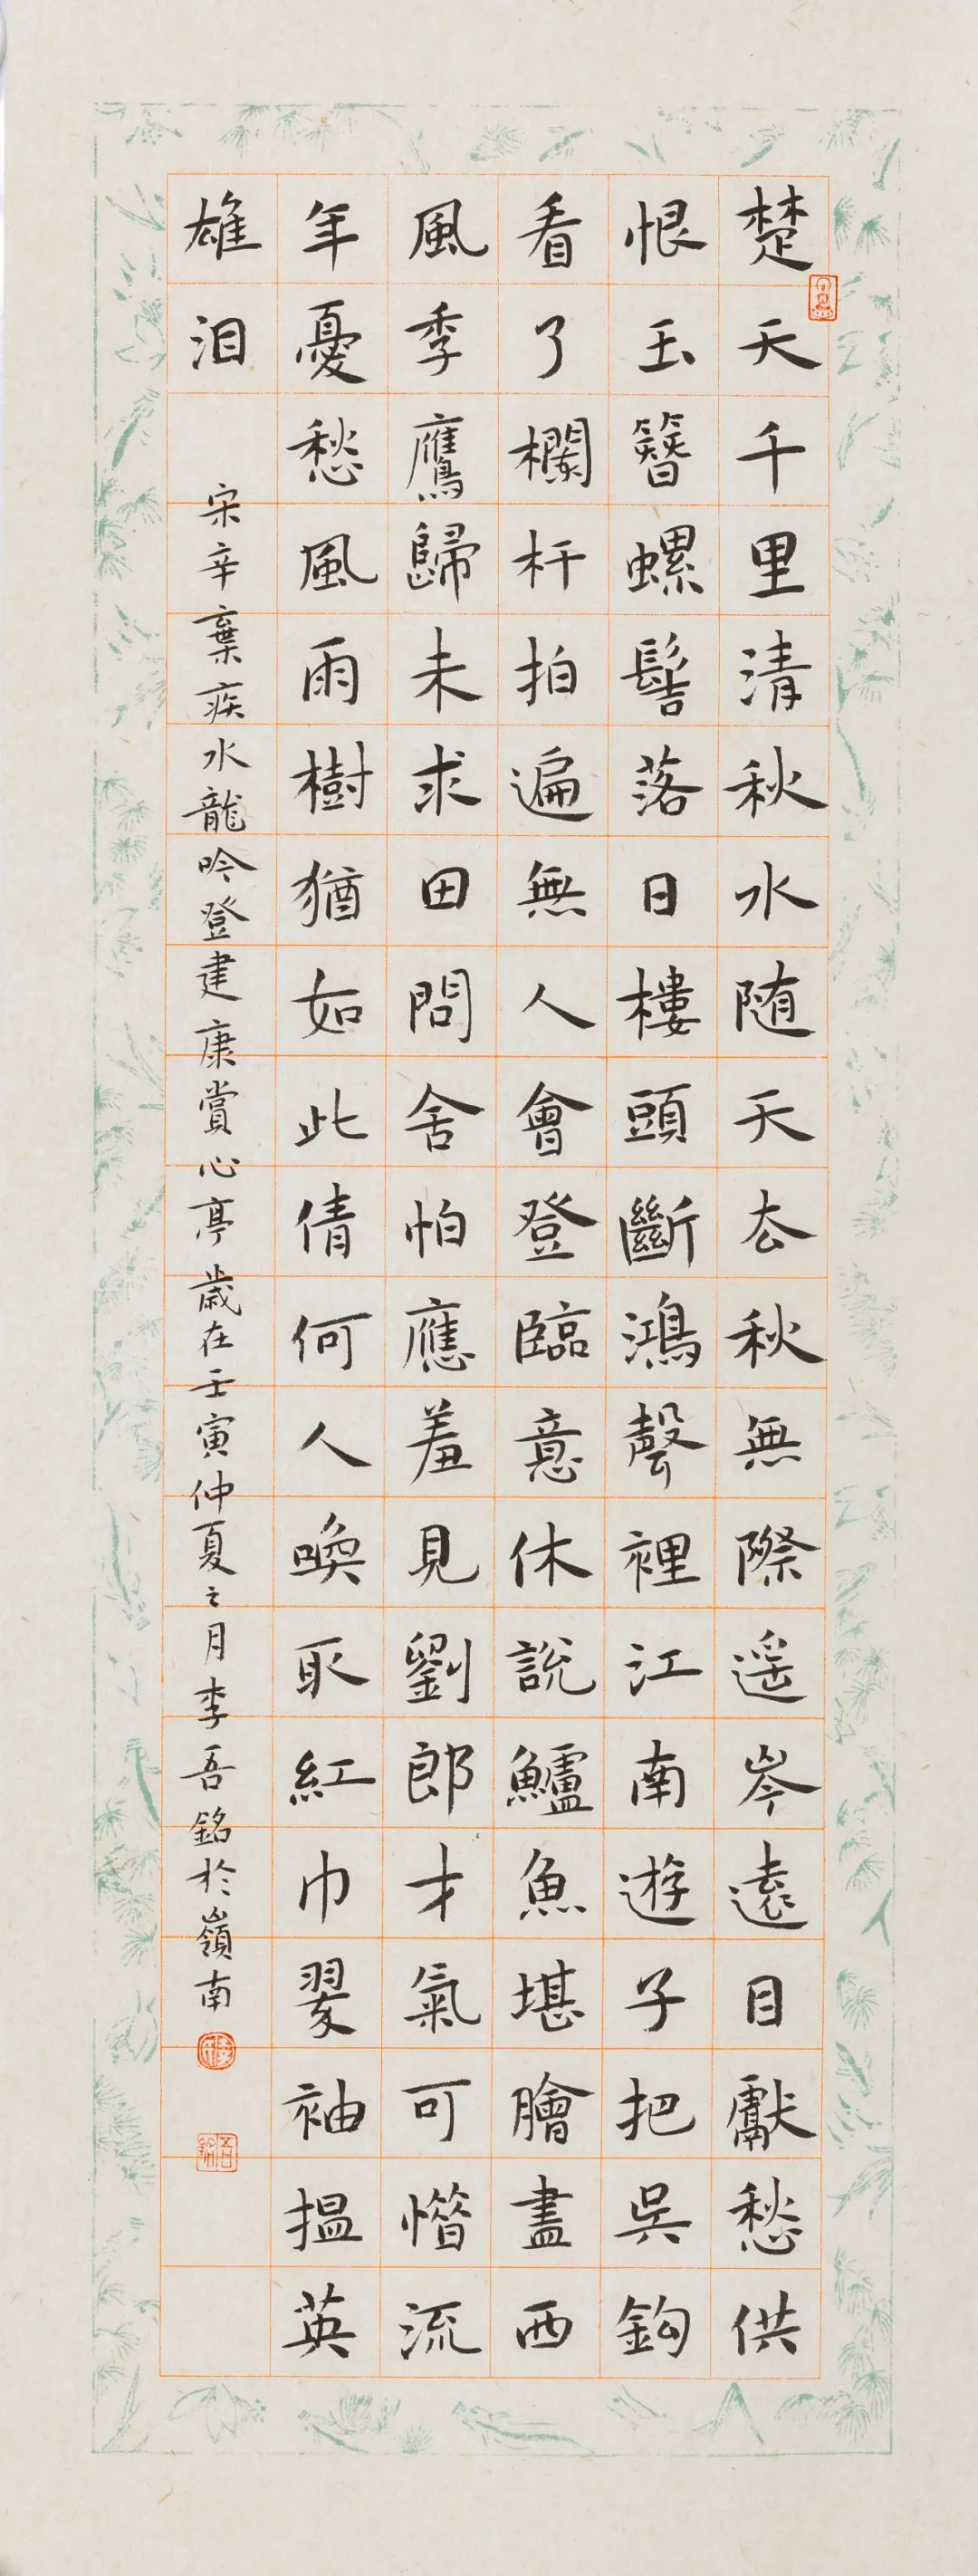 楚天千里清秋水随天去秋無際遥岑遠目獻愁供
恨玉簪螺髻落日樓頭斷鴻聲裡江南遊子把吳鈎
看了欄杆拍遍無人會登臨意休說鱸魚堪膾盡西
風季鷹歸未求田問舍怕應羞見劉郎才氣可惜流
年憂愁風雨樹猶如此倩何人喚取紅巾翠袖搵英
雄泪
宋辛棄疾水龍吟登建康賞心亭歲在壬寅仲夏之月李吾銘於嶺南